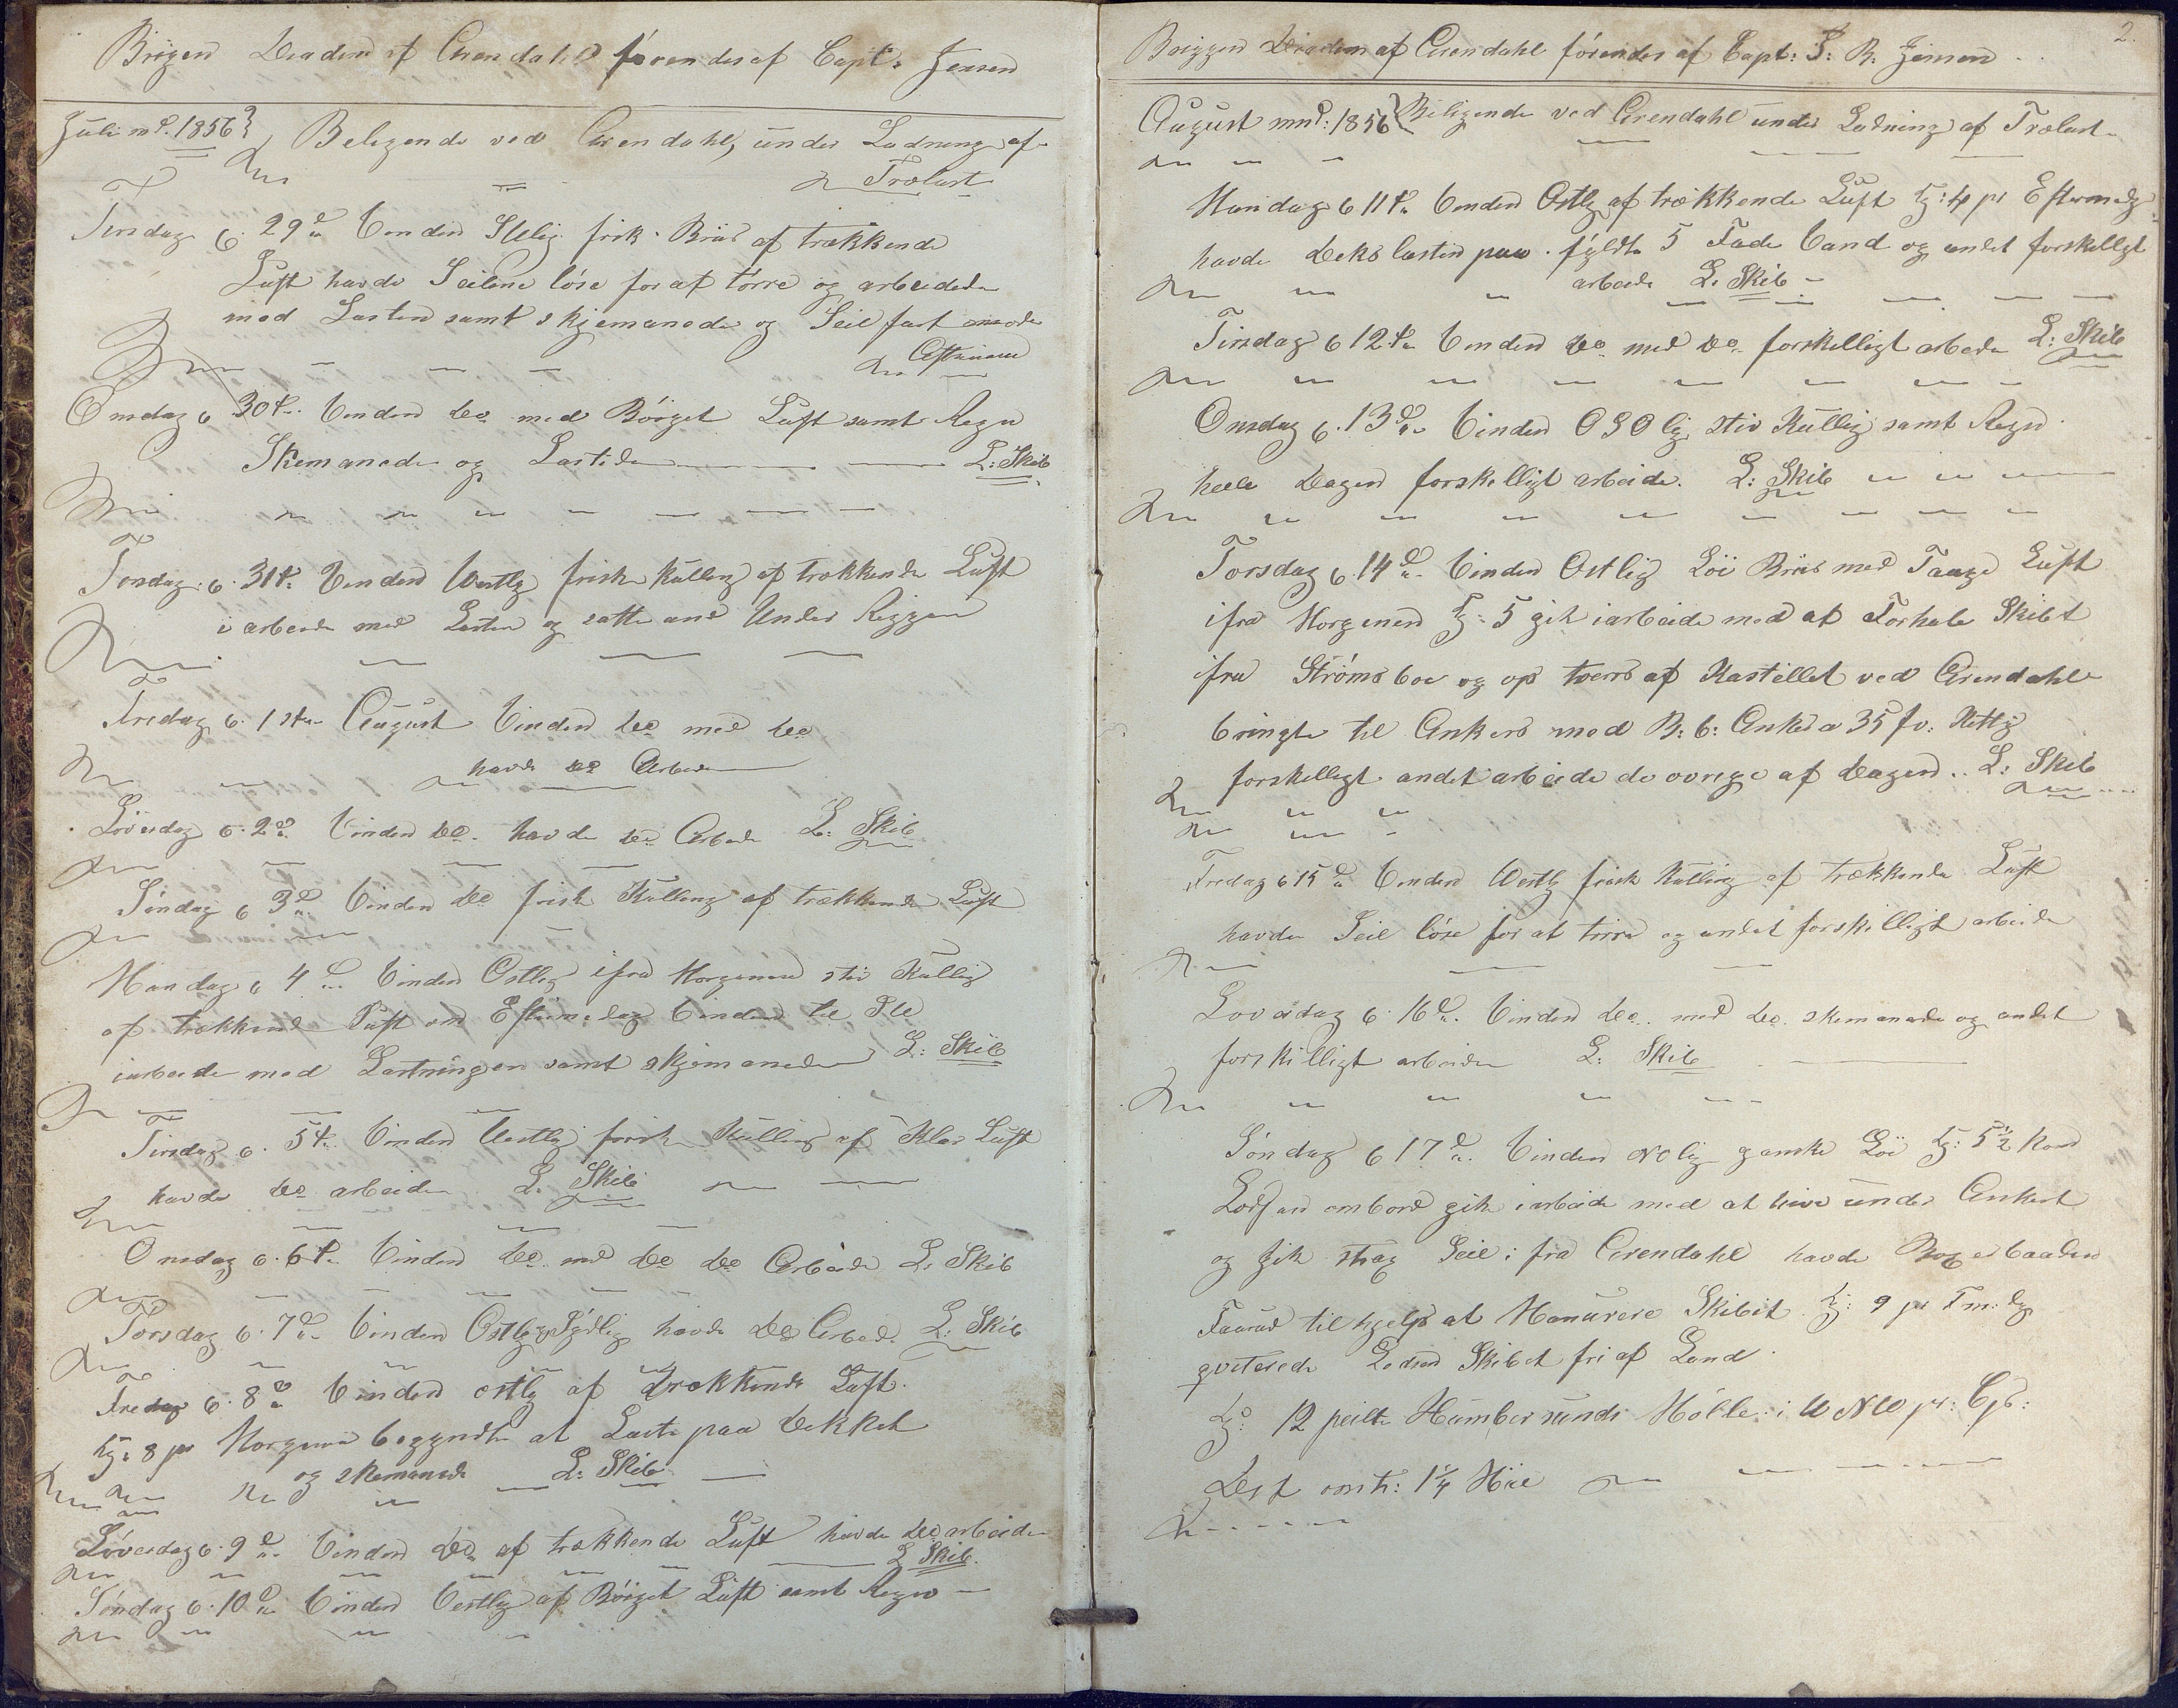 Brigen Diadem af Arendahl förendes af Capt: Jensen
Juli md. 1856 Beligende ved Arendahl, under Ladning af
Trælast
Tirsdag d 29de Vinden SWlig frisk Bris af trækkende
Luft havde Seilene löse for at törre og arbeidede
med Lasten samt skjemanede og Seil fast
Aftenen
Onsdag d 30te Vinden do med Böiget Luft samt Regn
Skemanede og Lastede L: Skib
Torsdag d. 31te Vinden Westlig frisk kulling af trækkende Luft
i arbeide med Lasten og satte Under Riggen
Fredag d. 1ste August Vinden do med do
havde do Arbeide
Löverdag d. 2de Vinden do havde do Arbeide L: Skib
Söndag d 3de Vinden do frisk Kulling af trækkende Luft
Mandag d 4de Vinden Ostlig ifra Morgenen stiv Kulling
af trækkende Luft om Eftermedag Vinden til
iarbeide med Lastningen samt skjemanede L: Skib
Tirsdag d. 5te Vinden Vestlig frisk Kulling af Klar Luft
havde do arbeide L: Skib
Onsdag d. 6te Vinden do med do do Arbeide L: Skib
Torsdag d. 7de Vinden Ostlig Sydlig havde do Arbed. L: Skib
Fredag d. 8de Vinden ostlig af trækkende Luft.
Kj: 8 pr Morgenen begyndte at Laste paa Dekket
og skemanede L: Skib
Löverdag d. 9de Vinden do af trækkende Luft havde do arbeide
L Skib.
Söndag d. 10de Vinden Vestlig af Böiget Luft samt Regn
2.
Briggen Diadem af Arendahl förendes af Capt: S: B. Jensen
August mnd: 1856 Beligende ved Arendahl under Ladning af Trælast
Mandag d 11te Vinden Ostlig af trækkende Luft Kj: 4 pr Eftermdg
havde Dekslasten paa. fyldte 5 Fade Vand og andet forskelligt
arbeide L: Skib
Tirsdag d 12te Vinden do med do forskelligt arbeide L: Skib
Onsdag d. 13de Vinden OSOlig stiv Kulling samt Regn
heele Dagen forskelligt arbeide. L: Skib
Torsdag d. 14de Vinden Ostlig Löi Bris med Taage Luft
ifra Morgenen Kj: 5 gik iarbeide med at Forhale Skibet
ifra Strömsboe og op tverrs af Kastellet ved Arendahl
bringte til Ankers med B: B: Anker a 35 fv: Ketting
forskelligt andet arbeide de övrige af Dagen.. L: Skib
Fredag d 15de Vinden Westlig frisk Kulling af trækkende Luft
havde Seil löse for at törre og andet forskelligt arbeide
Loverdag d. 16de Vinden do med do skemanede og andet
forskelligt arbeide L: Skib
Söndag d 17de Vinden NOlig ganske Löi Kj: 5½ kom
Lodsen ombord gik i arbeide med at hive under Ankeret
og gik strax Seil i fra Arendahl havde Bogserbaaden
til hjelp at Manurere Skibet Kj: 9 pr Fm:dg
qviterede Lodsen Skibet fri af Land
Kj: 12 peilte Humbersunds Mölle i W NW pr: Cps:
Dist omtr: 1¼ Mile